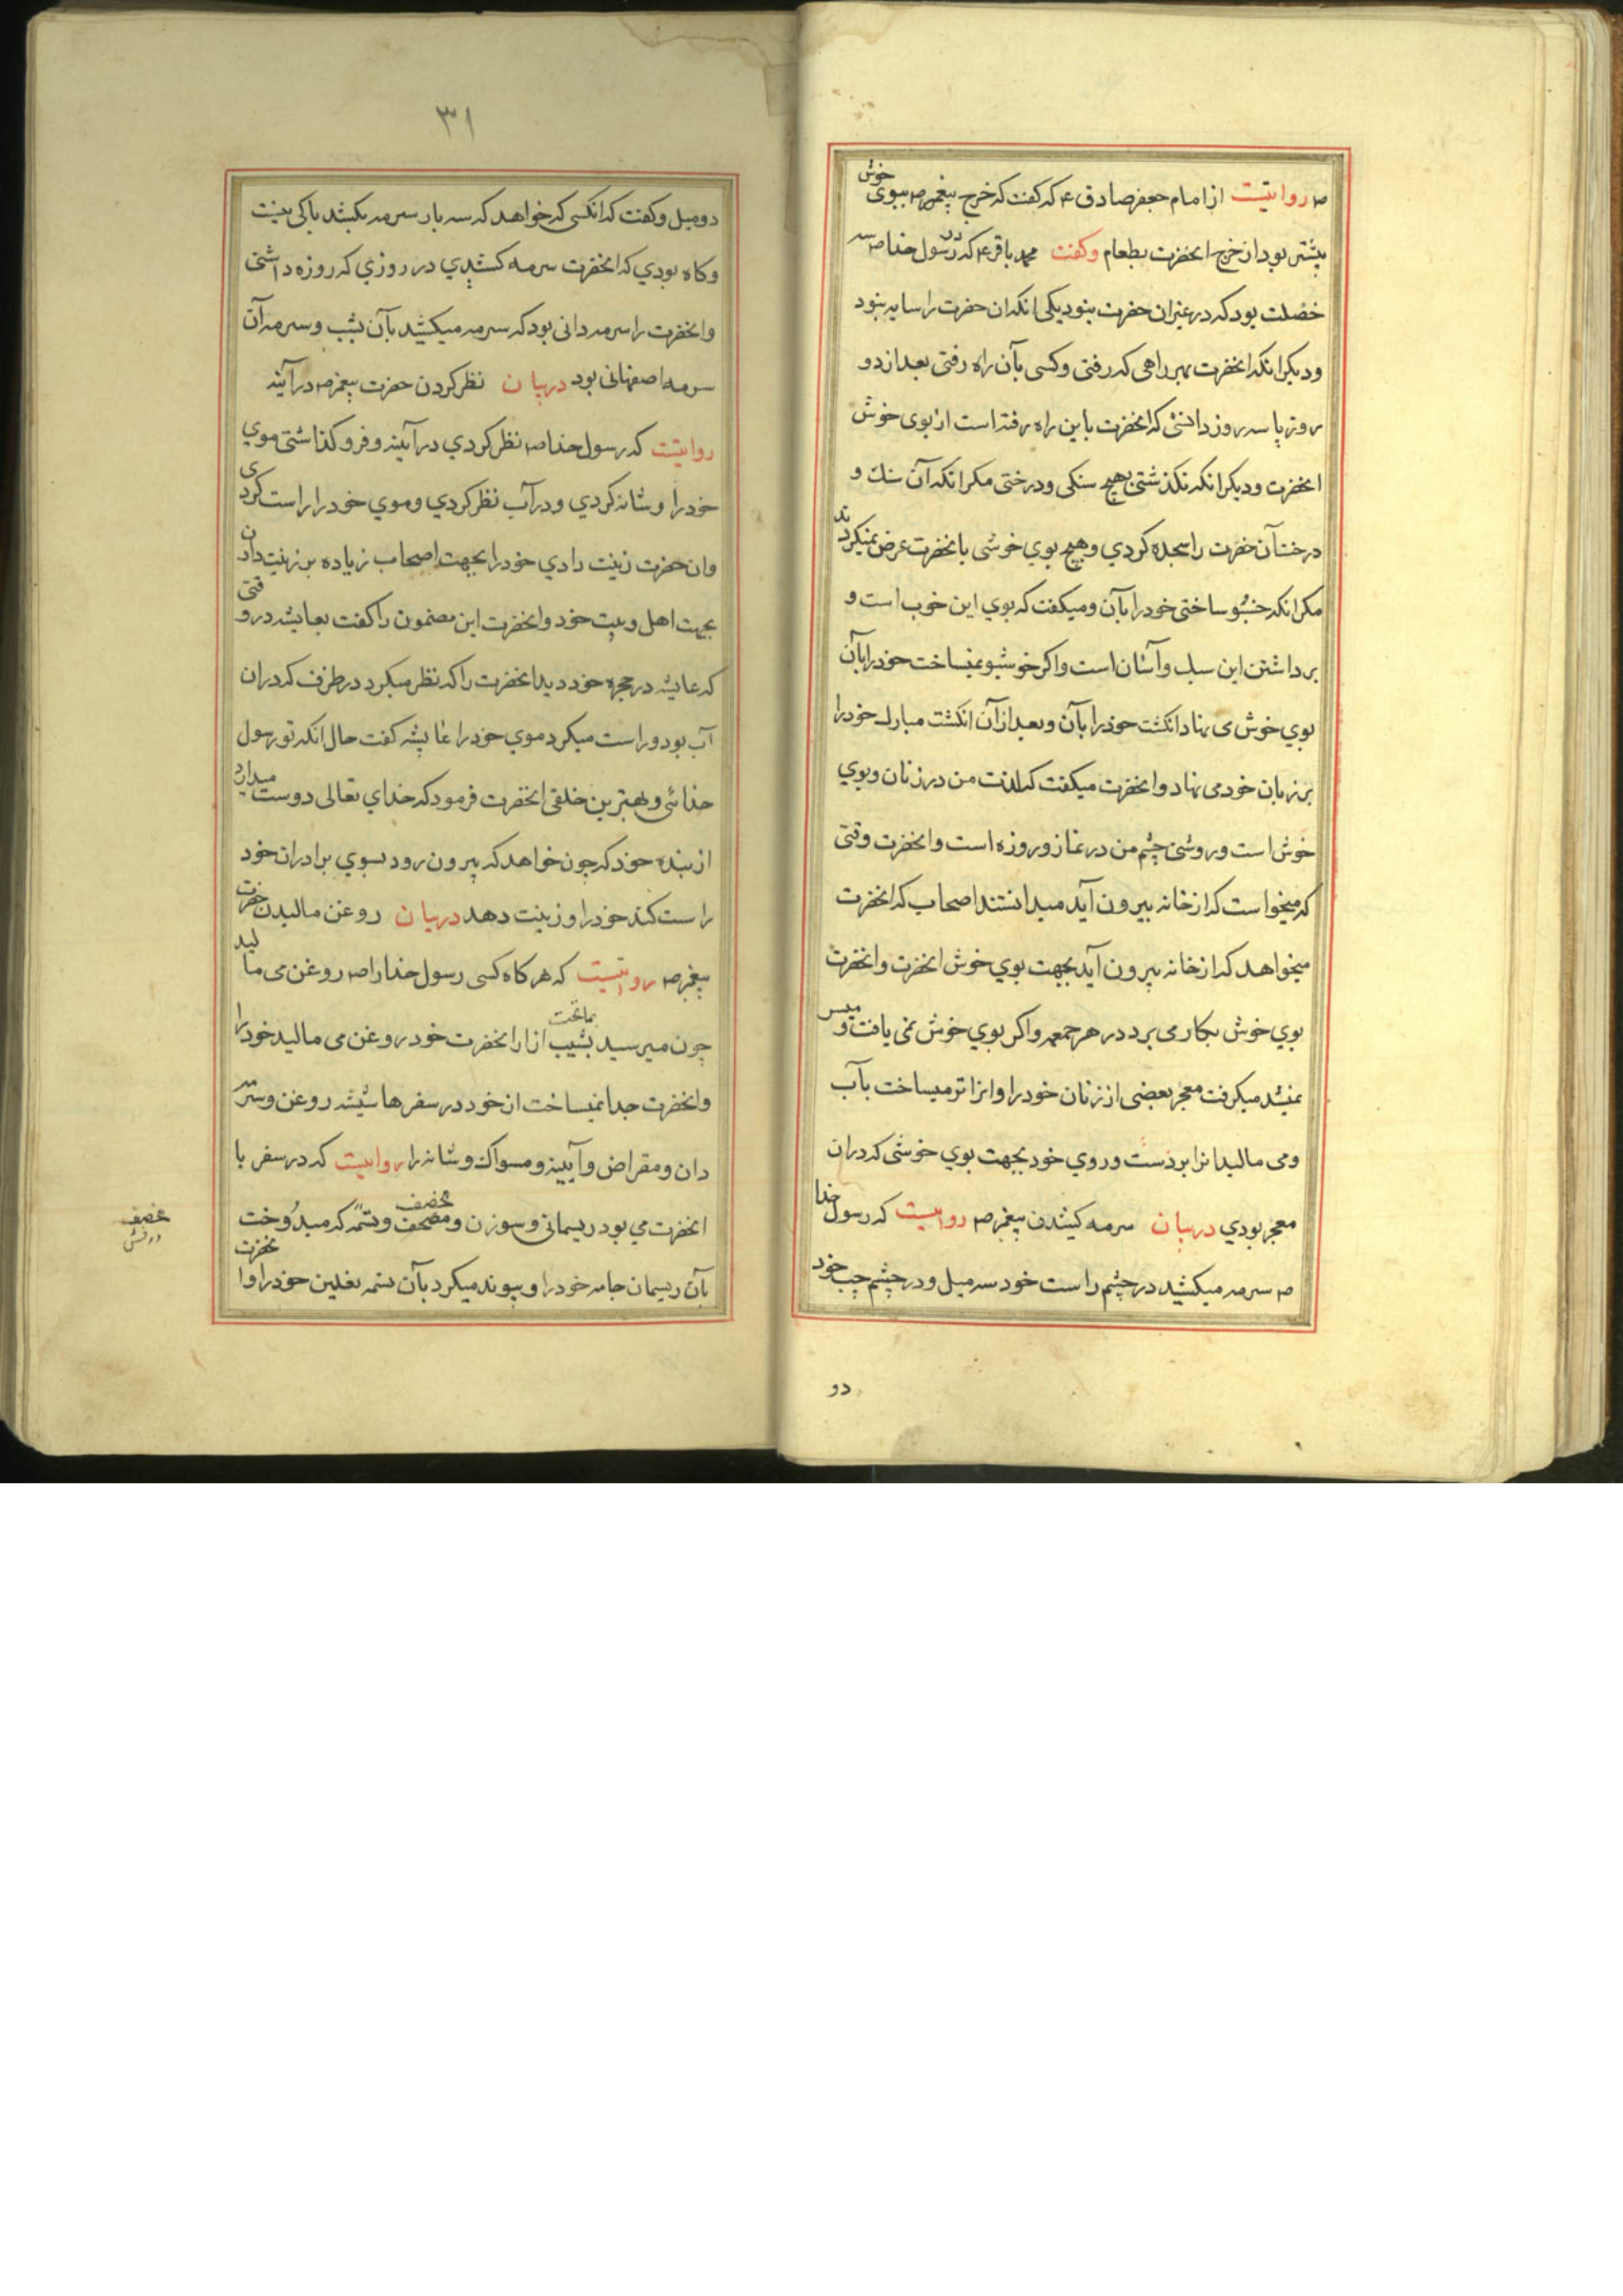 ص روایتست از امام جعفر صادق ع که کفت که خرج پیغمبر ص ببوی خوش
بیشتر بود از خرج انحضرت بطعام وکفت محمد باقر ع که در رسول خدا ص سه
خصلت بود که در غیر ان حضرت نبود یکی انکه ان حضرت را سایه نبود
و دیکر انکه انحضرت بهر راهی که رفتی و کسی بآن راه رفتی بعد از دو
روز یا سه روز دانستی که انحضرت باین راه رفته است از بوی خوش
انحضرت و دیکر انکه نکذشتی بهیچ سنکی و درختی مکر انکه آن سنك و
درخت آن حضرت را سجده کردي و هیچ بوي خوشی بانحضرت عرض نمیکردند
مکر انکه خشبو ساختی خود را بآن و میکفت که بوي این خوب است و
برداشتن این سبك و آسان است و اکر خوشبو نمیساخت خود را بآن
بوي خوش می نهاد انکشت خود را بآن و بعد از آن انکشت مبارك خود را
بر زبان خود می نهاد و انحضرت میکفت که لذت من در زنان و بوي
خوش است و روشنی چشم من در نماز و روزه است و انحضرت وقتی
که میخواست که از خانه بیرون آید میدانستند اصحاب که انحضرت
میخواهد که از خانه بیرون آید بجهت بوي خوش انحضرت و انحضرت
بوي خوش بکار می برد در هر جمعه و اکر بوي خوش نمی یافت و میسر
نمیشد میکرفت معجر بعضی از زنان خود را و انرا تر میساخت بآب
و می مالید انرا بر دست و روي خود بجهت بوي خوشی که در ان
معجر بودي در بیان سرمه کیشدن پیغمبر ص روایتست که رسول خدا
ص سرمه میکشید در چشم راست خود سه میل و در چشم چپ خود
دو
۳۱
دو میل و کفت که انکسی که خواهد که سه بار سرمه بکشد باکی نیست
و کاه بودي که انحضرت سرمه کشیدي در روزي که روزه داشتی
و انحضرت را سرمه دانی بود که سرمه میکشید بآن بشب و سرمه آن
سرمه اصفهانی بود در بیان نظر کردن حضرت پیغمبر ص در آینه
روایتست که رسول خدا ص نظر کردي در آیینه و فرو کذاشتی موي
خود را و شانه کردي و در آب نظر کردي و موي خود را راست کردی
و ان حضرت زینت دادي خود را بجهت اصحاب زیاده بر زینت دادن
بجهت اهل و بیت خود و انحضرت این مضمون را کفت بعایشه در وقتی
که عایشه در حجره خود دید انحضرت را که نظر میکرد در ظرف که در ان
آب بود و راست میکرد موي خود را عایشه کفت حال انکه تو رسول
خدائی و بهترین خلقی انحضرت فرمود که خداي تعالی دوست میدارد
از بنده خود که چون خواهد که بیرون رود بسوي برادران خود
راست کند خود را و زینت دهد در بیان روغن مالیدن حضرت
پیغمبر ص روایتست که هر کاه کسی رسول خدا را ص روغن می مالید
چون میرسید بشیب ازار انحضرت خود روغن می مالید خود را
بماتحت
و انحضرت جدا نمیساخت از خود در سفرها شیشه روغن و سرمه
دان و مقراض و آیینه و مسواك و شانه را روایتست که در سفر با
انحضرت می بود ریسمانی و سوزن و مصحف و تسمه که میدوخت
مخصف
بآن ریسمان جامه خود را و پیوند میکرد بآن تسمه نعلین خود را و انحضرت
مخصف
درفش